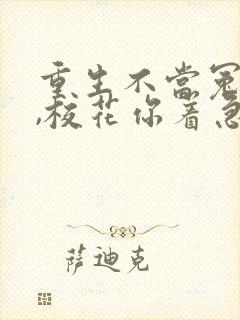 重生不当冤
,校花你着急
萨迪克